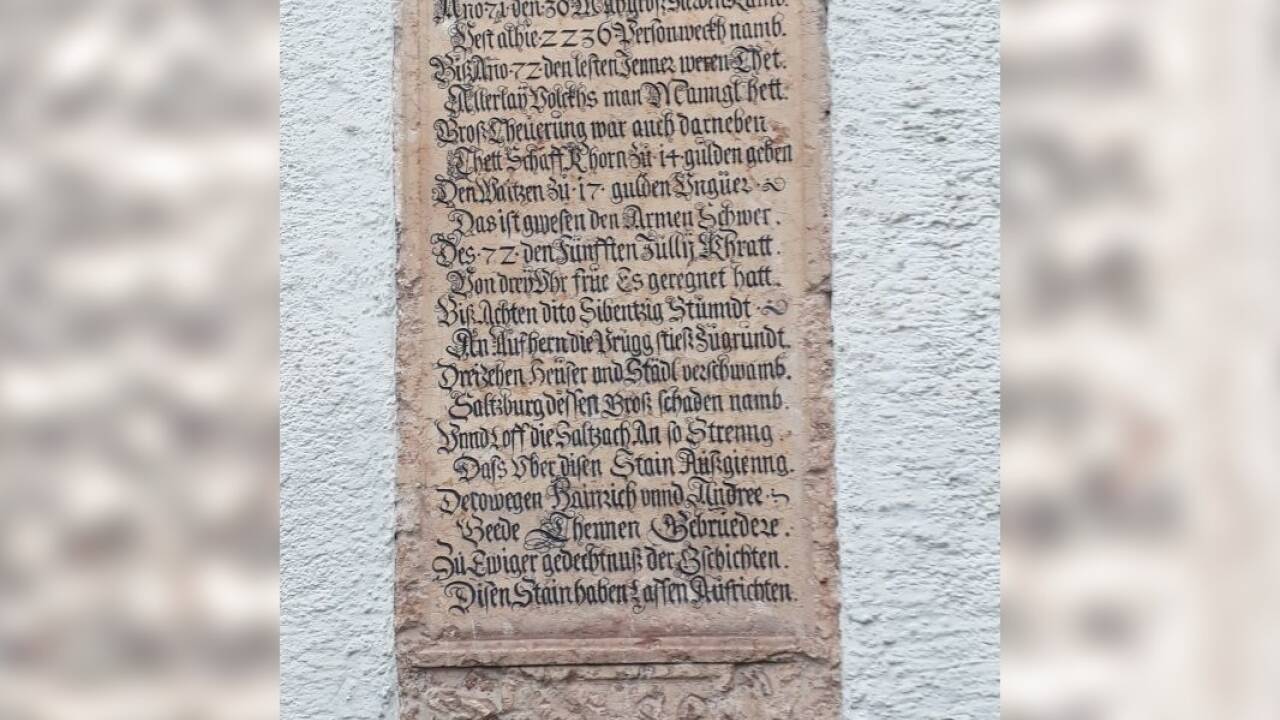 Año 71 den 30 May groß Sterben kamb.
Pest alhie 2236 Person weckh namb.
Biß Año 72 den lesten Jenner weren Thet.
Allerlaÿ Volckhs man Manngl hett.
Groß Theüerung war auch darneben
Thett Schaff Khorn Zü 14 gulden geben
Den Waitzen Zü 17 gulden Vngüer
Das ist gwesen den Armen Schwer.
Des 72 den Fünfften Jullÿ Khratt.
Von dreÿ Vhr früe Es geregnet hatt.
Biß Achten dito Sibentzig Stünndt
An Aufhern die Brügg stieß Zügründt.
Dreizehen Heüser vnd Städl verschwamb.
Saltzburg dessen Groß schaden namb.
Vnnd Loff die Saltzach An so Strenng
Dass Vber disen Stain Außgienng.
Derowegen Hainrich vnnd Andree
Beede Thennen Gebrüedere.
Zü Ewiger gedechtnuß der Gschichten.
Disen Stain haben Lassen Aufrichten.